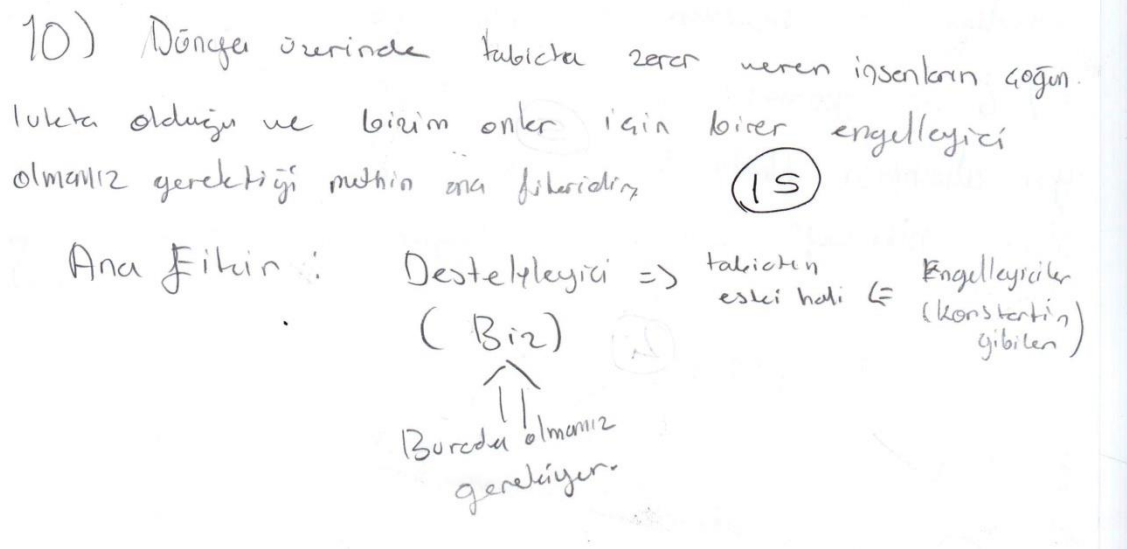 10) Dünya üzerinde tabiata zarar veren insanların çoğun-
lukta olduğu ve bizim onlar için birer engelleyici
olmamız gerektiği metnin ana fikridir.
15
Ana Fikir : Destekleyici => tabiatın eski hali <= Engelleyiciler
(Biz) (Konstantin gibiler)
Burada olmamız
gerekiyor.